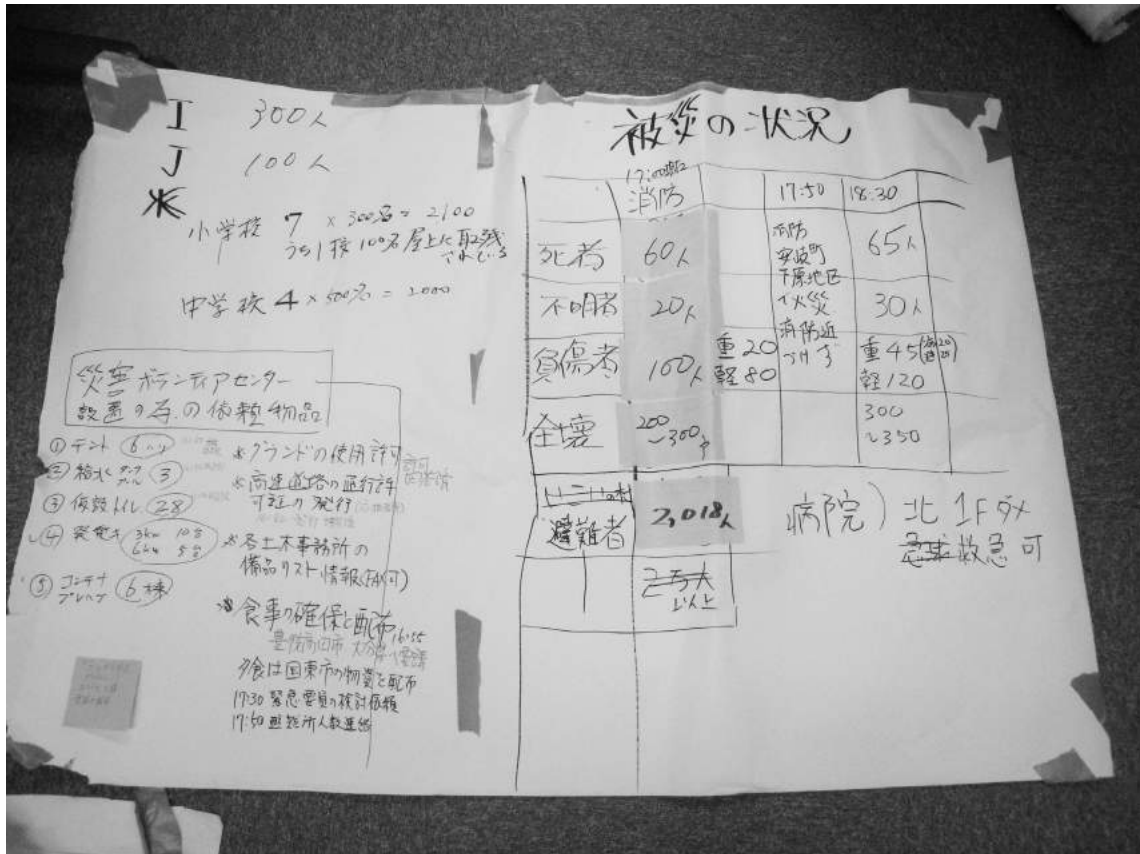 I 300人
J 100人
※
小学校 7 × 300名 = 2100
うち1校100名屋上に取残
されている
中学校 4 × 500名 = 2000
災害ボランティアセンター
設置の為の依頼物品
① テント 6ハリ
② 給水 タンク 3
③ 仮設トイレ 28
④ 発発キ 3kw 10台
6kw 5台
⑤ コンテナ
プレハブ 6棟
※グランドの使用許可
※高速道路の通行許
可証の発行
※各土木事務所の
備品リスト情報(FAX可)
※食事の確保と配布
豊後高田市 大分県へ要請 16:55
夕食は国東市の物資を配布
17:30 緊急要員の検討依頼
17:50 避難所人数連絡
被災の状況
17:00現在
消防 17:50 18:30
死者 60人 65人
不明者 20人 30人
負傷者 100人 重20 重45
軽80 軽120
全壊 200 300
~300戸 ~350
消防
安岐町
下原地区
火災
消防近
づけず
避難者 2,018人
2万人
以上
病院) 北 1Fダメ
救急可